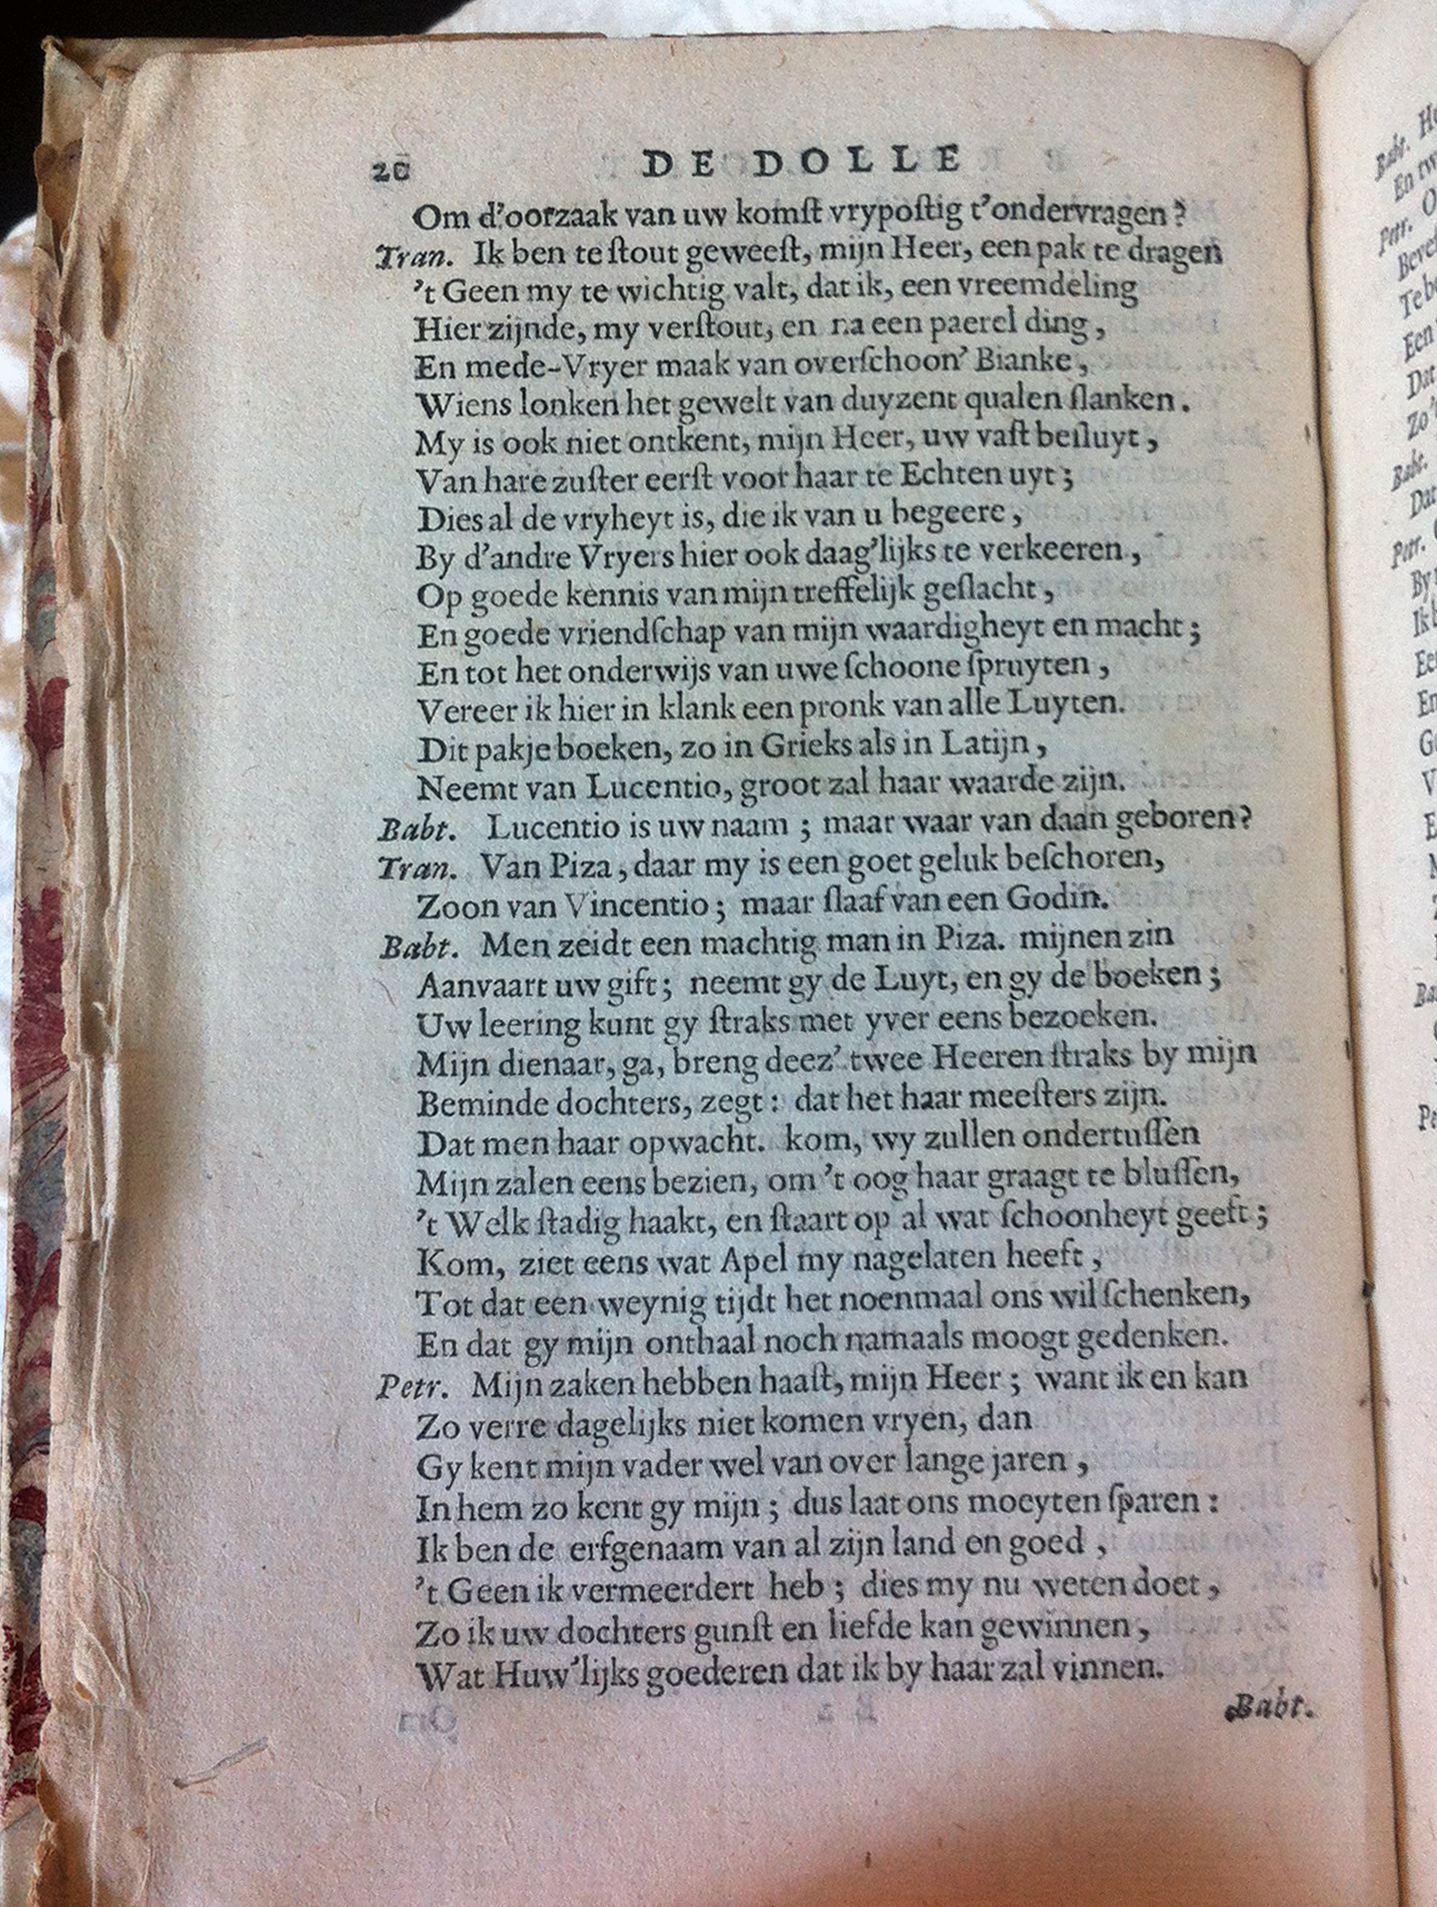 20 DE DOLLE
Om d'oorzaak van uw komſt vrypoſtig t'ondervragen?
Tran. Ik ben te ſtout geweeſt, mijn Heer, een pak te dragen
't Geen my te wichtig valt, dat ik, een vreemdeling
Hier zijnde, my verſtout, en na een paerel ding,
En mede-Vryer maak van overſchoon' Bianke,
Wiens lonken het gewelt van duyzent qualen ſlanken.
My is ook niet ontkent, mijn Heer, uw vaſt beſluyt,
Van hare zuſter eerſt voor haar te Echten uyt;
Dies al de vryheyt is, die ik van u begeere,
By d'andre Vryers hier ook daag'lijks te verkeeren,
Op goede kennis van mijn treffelijk geſlacht,
En goede vriendſchap van mijn waardigheyt en macht;
En tot het onderwijs van uwe ſchoone ſpruyten,
Vereer ik hier in klank een pronk van alle Luyten.
Dit pakje boeken, zo in Grieks als in Latijn,
Neemt van Lucentio, groot zal haar waarde zijn.
Babt. Lucentio is uw naam; maar waar van daan geboren?
Tran. Van Piza, daar my is een goet geluk beſchoren,
Zoon van Vincentio; maar ſlaaf van een Godin.
Babt. Men zeidt een machtig man in Piza. mijnen zin
Aanvaart uw gift; neemt gy de Luyt, en gy de boeken;
Uw leering kunt gy ſtraks met yver eens bezoeken.
Mijn dienaar, ga, breng deez' twee Heeren ſtraks by mijn
Beminde dochters, zegt: dat het haar meeſters zijn.
Dat men haar opwacht. kom, wy zullen ondertuſſen
Mijn zalen eens bezien, om 't oog haar graagt te bluſſen,
't Welk ſtadig haakt, en ſtaart op al wat ſchoonheyt geeft;
Kom, ziet eens wat Apel my nagelaten heeft,
Tot dat een weynig tijdt het noenmaal ons wil ſchenken,
En dat gy mijn onthaal noch namaals moogt gedenken.
Petr. Mijn zaken hebben haaſt, mijn Heer; want ik en kan
Zo verre dagelijks niet komen vryen, dan
Gy kent mijn vader wel van over lange jaren,
In hem zo kent gy mijn; dus laat ons moeyten ſparen:
Ik ben de erfgenaam van al zijn land en goed,
't Geen ik vermeerdert heb; dies my nu weten doet,
Zo ik uw dochters gunſt en liefde kan gewinnen,
Wat Huw'lijks goederen dat ik by haar zal vinnen.
Babt.